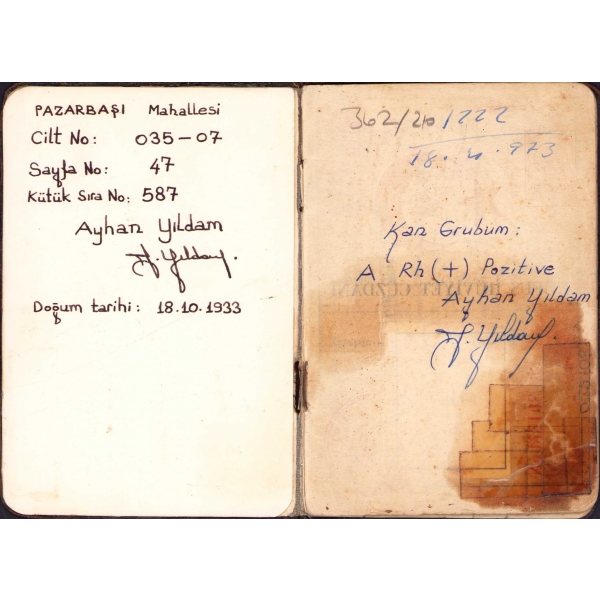 PAZARBAŞI Mahallesi
Cilt No: 035-07
Sayfa No: 47
Kütük Sıra No: 587
Ayhan Yıldam
A. Yıldam.
Doğum tarihi: 18.10.1933
362/20/222
Kan Grubum:
A Rh (+) Pozitive
Ayhan Yıldam
A. Yıldam.